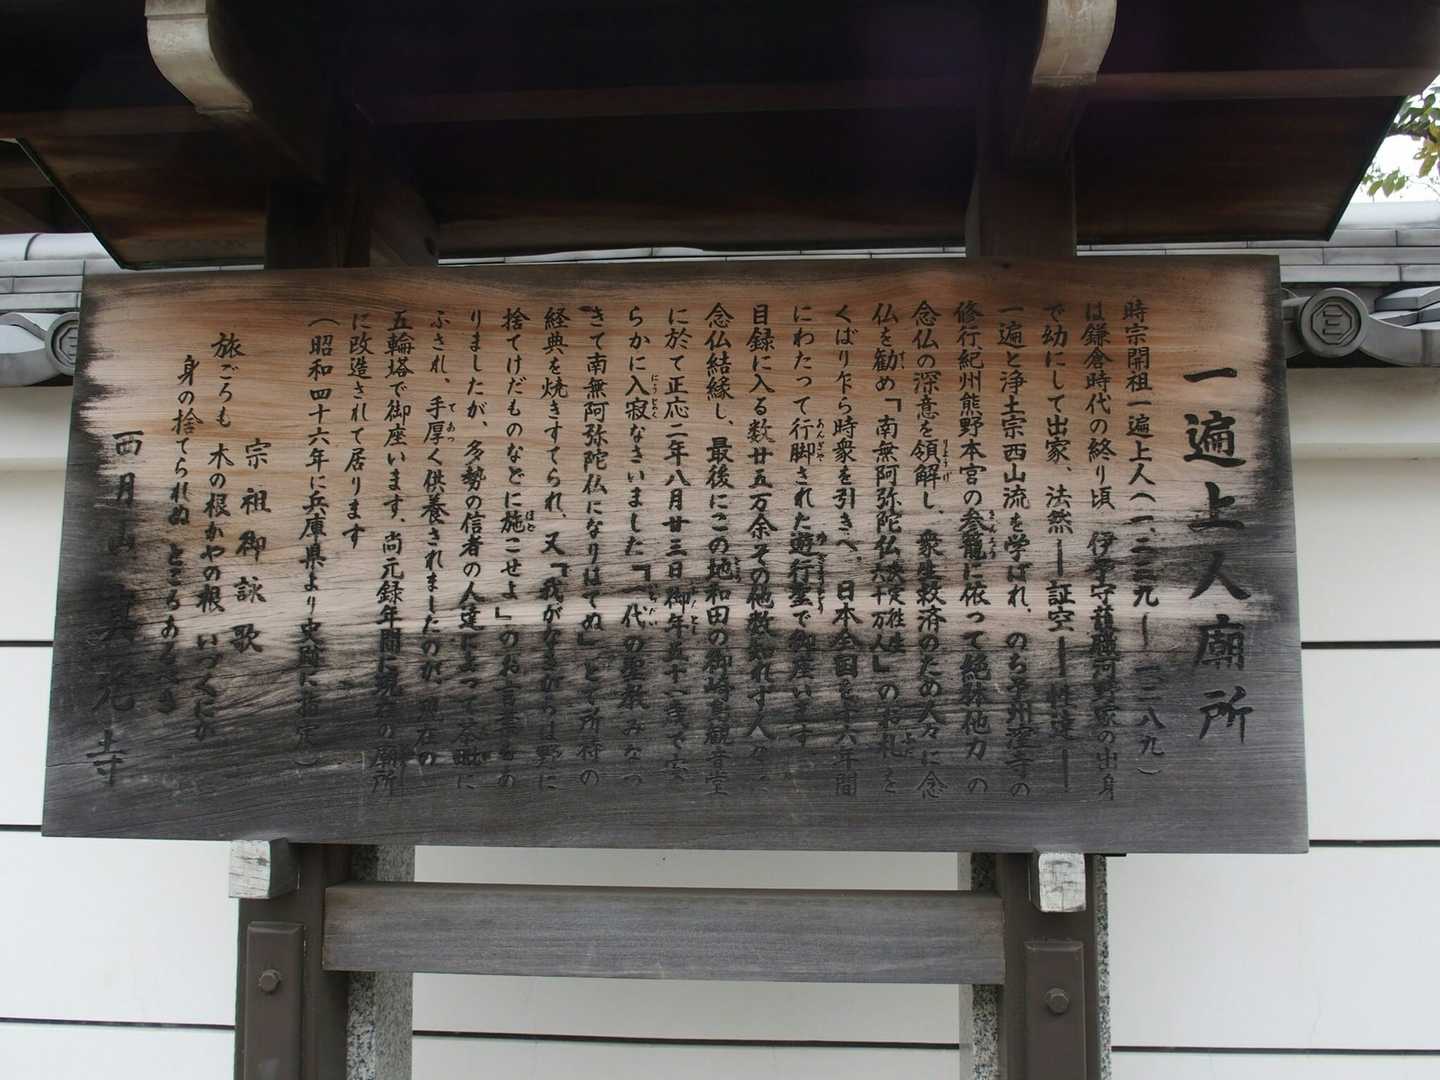 一遍上人廟所
時宗開祖一遍上人(一二三九―一二八九)
は鎌倉時代の終り頃 伊予守護職河野家の出身
で幼にして出家、法然―証空―聖達―
一遍と浄土宗西山流を学ばれ、のち予州窪寺の
修行、紀州熊野本宮の参籠に依って絶対他力の
念仏の深意を領解し、衆生救済のため人々に念
仏を勧め「南無阿弥陀仏決定往生六十万人」のお札を
くばり乍ら時衆を引きへ、日本全国を十六年間
にわたって行脚された遊行聖で御座います
目録に入る数廿五万余その他数知れず人々に
念仏結縁し、最後にこの地和田の御崎の観音堂
に於て正応二年八月廿三日御年五十一さいで安
らかに入寂なさいました「一代の聖教みなつ
きて南無阿弥陀仏になりはてぬ」とて所持の
経典を焼きすてられ、又「我がなきがらは野に
捨てけだものなどに施こせよ」のお言葉もあ
りましたが、多勢の信者の人達によって荼毗に
ふされ、手厚く供養されましたのが、現在の
五輪塔で御座います、尚元録年間に現在の廟所
に改造されて居ります
(昭和四十六年に兵庫県より史跡に指定)
宗祖御詠歌
旅ごろも 木の根かやの根 いづくにか
身の捨てられぬ ところあるべき
西月山 真光寺